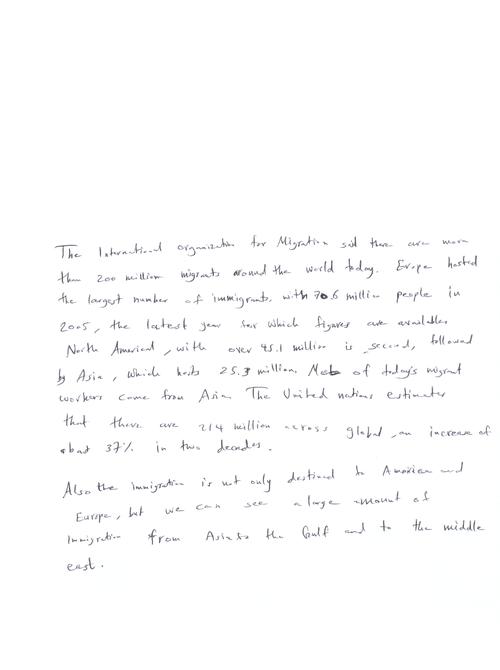 The International organization for Migration said there are more
than 200 million migrants around the world today. Europe hosted
the largest number of immigrants, with 70.6 million people in
2005, the latest year for which figures are available.
North American, with over 45.1 million is second, followed
by Asia, which hosts 25.3 million. Most of today's migrant
workers come from Asia. The United nations estimates
that there are 214 million across global, an increase of
about 37% in two decades.
Also the immigration is not only destined to America and
Europe, but we can see a large amount of
Immigration from Asia to the Gulf and to the middle
east.